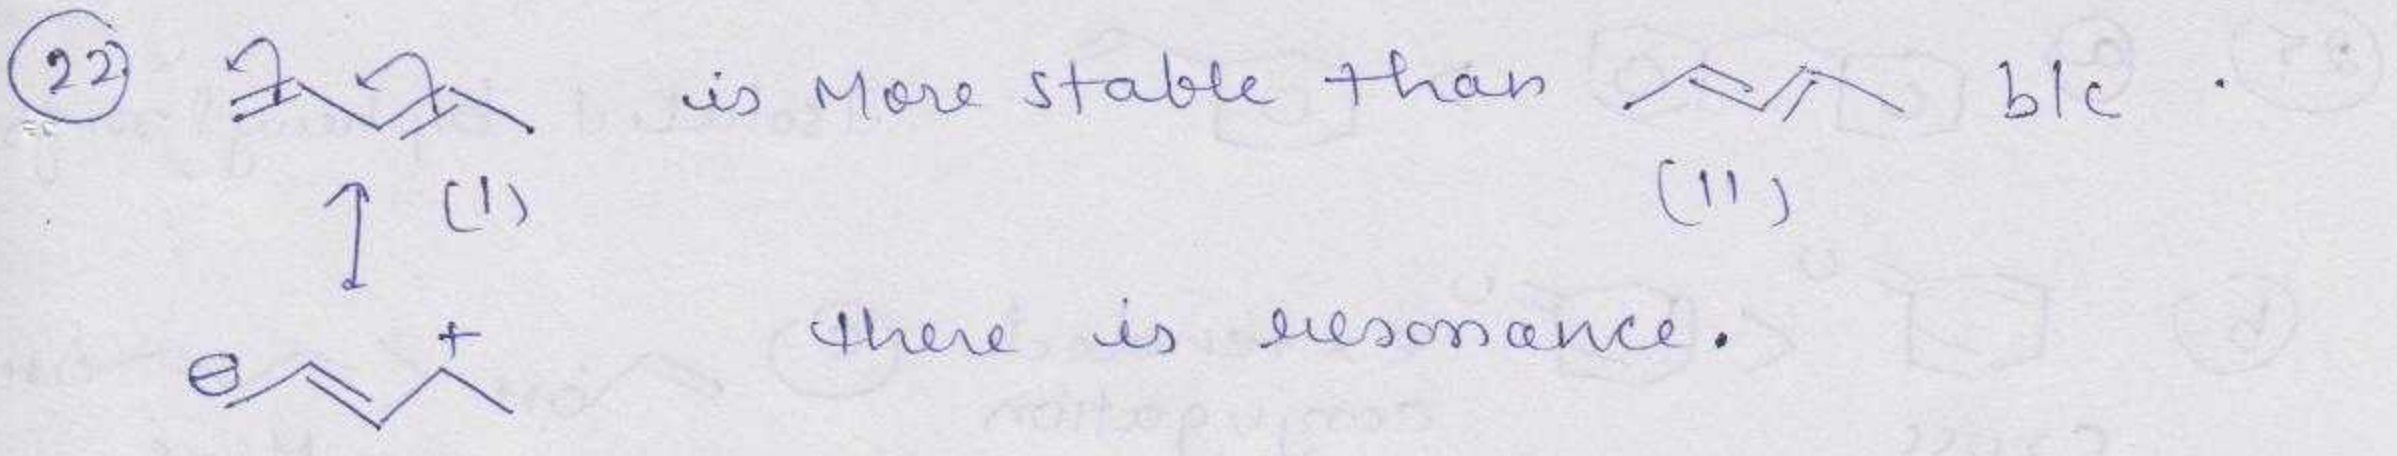 22 is More stable than b/c .
(I) (II)
⊖ + there is resonance.